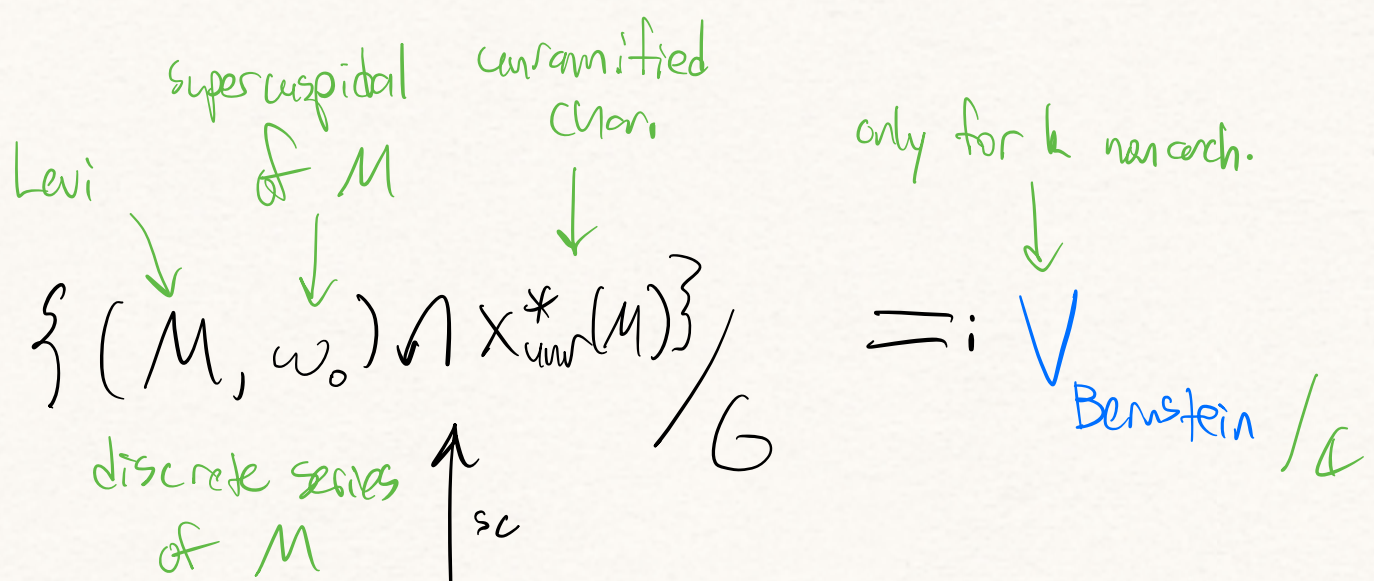 supercuspidal
of M
unramified
char.
Levi
only for k nonarch.
{(M, ω₀) ↶ X*unr(M)}/G =: V Bernstein /ℂ
discrete series
of M
sc